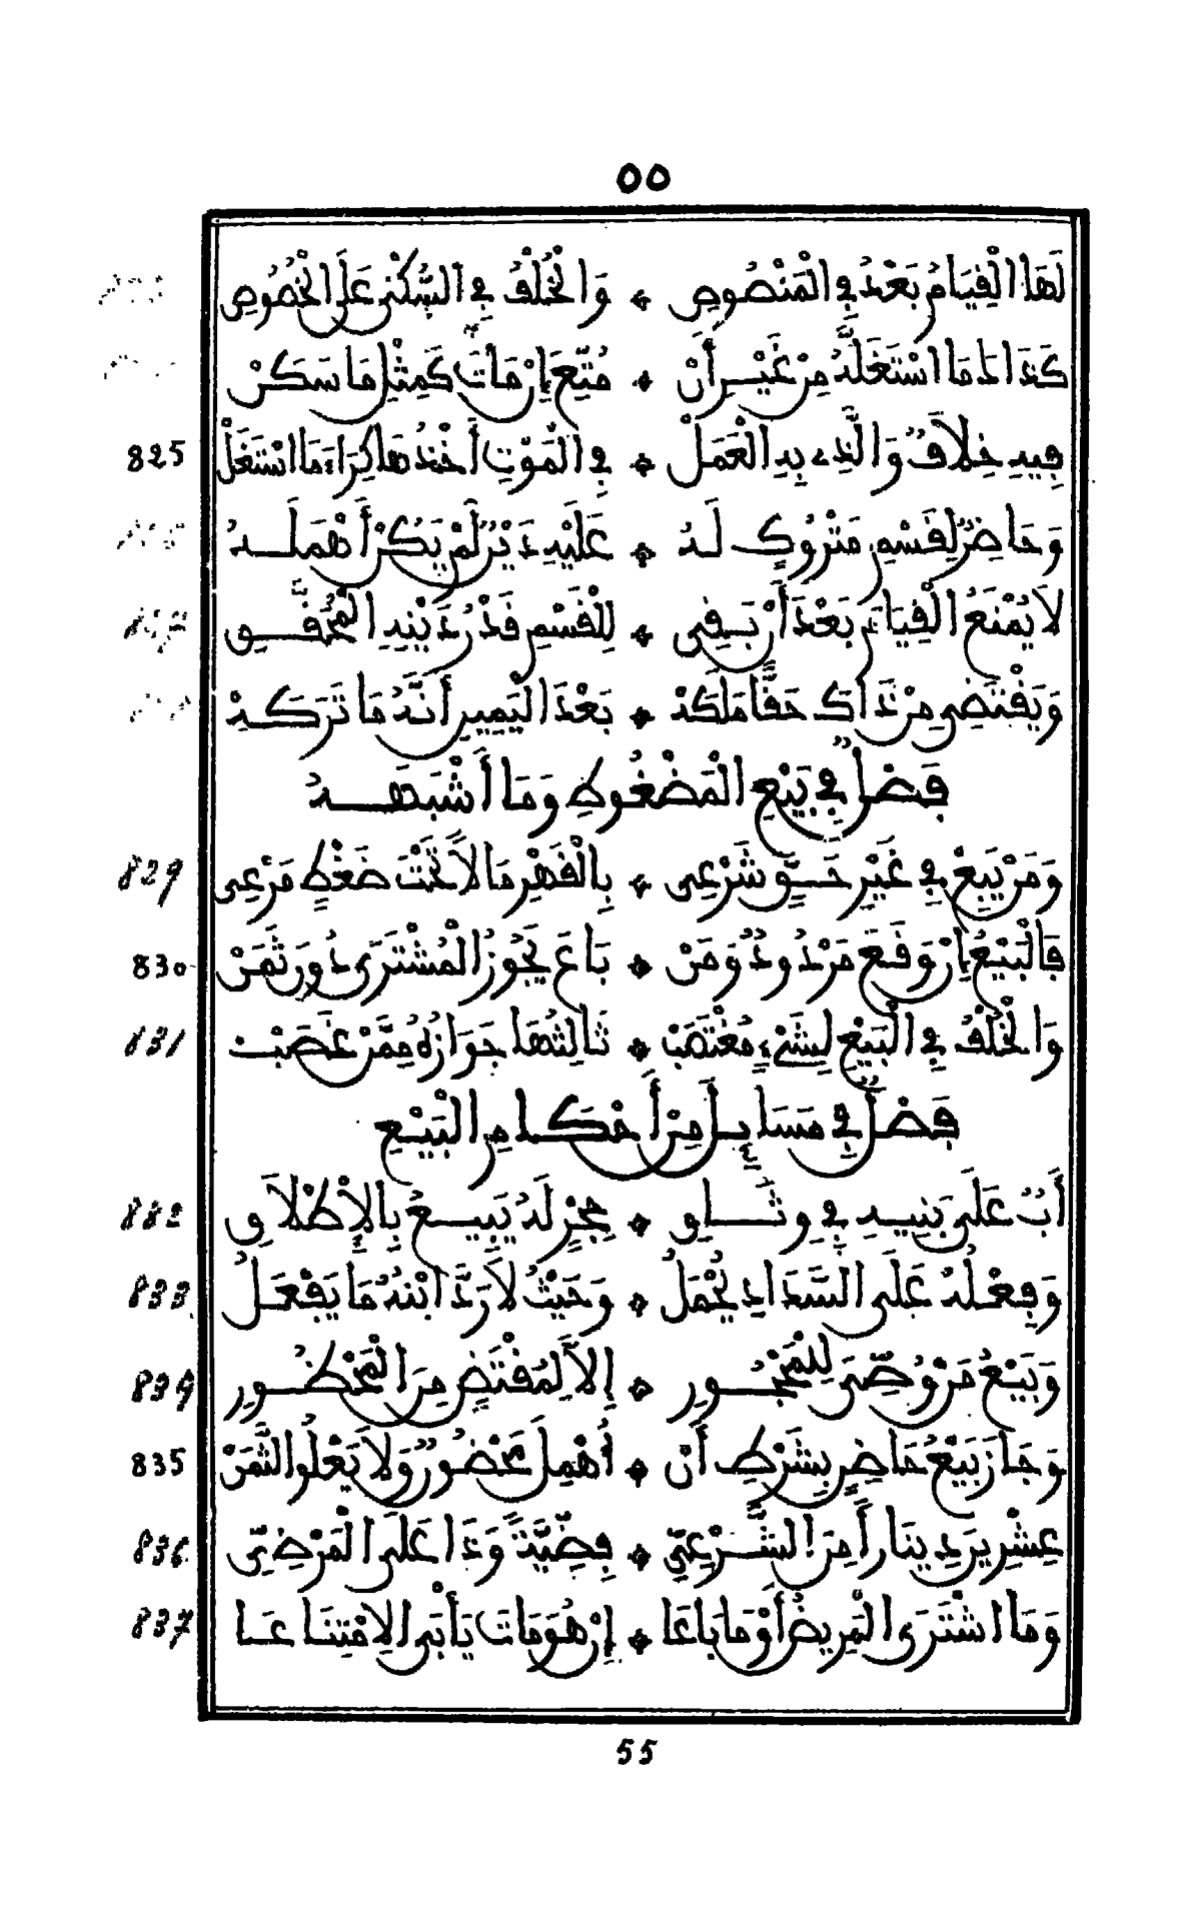 ٥٥
لَهَا الْقِيَامُ بَعْدُ فِي الْمَنْصُوصِ * وَالْخُلْفُ فِي السُّكْنَى عَلَى الْخُصُوصِ
كَذَاكَ مَا اسْتَغَلَّهُ مِنْ غَيْرِ أَنْ * مُتِّعَ إِنْ مَاتَ كَمِثْلِ مَا سَكَنْ
825 فِيهِ خِلَافٌ وَالَّذِي بِهِ الْعَمَلْ * فِي الْمَوْتِ أَخْذُهَا كِرَاءَ مَا اسْتَغَلْ
وَحَاضِرٌ لِقَسْمِ مَتْرُوكٍ لَهُ * عَلَيْهِ دَيْنٌ لَمْ يَكُنْ أَهْمَلَهُ
لَا يُمْنَعُ الْقِيَامَ بَعْدَ أَنْ بَقِي * لِلْقَسْمِ قَدْرُ دَيْنِهِ الْمُحَقَّقِ
وَيَقْتَضِي مِنْ ذَاكَ حَقًّا مَلَكَهْ * بَعْدَ الْيَمِينِ أَنَّهُ مَا تَرَكَهْ
فَصْلٌ فِي بَيْعِ الْمَضْغُوطِ وَمَا أَشْبَهَهُ
829 وَمَنْ يَبِعْ فِي غَيْرِ حَقٍّ شَرْعِي * بِالْقَهْرِ مَالًا تَحْتَ ضَغْطٍ مَرْعِي
830 فَالْبَيْعُ إِنْ وَقَعَ مَرْدُودٌ وَمَنْ * بَاعَ يَحُوزُ الْمُشْتَرَى دُونَ ثَمَنْ
831 وَالْخُلْفُ فِي الْبَيْعِ لِشَيْءٍ مُغْتَصَبْ * ثَالِثُهَا جَوَازُهُ مِمَّنْ غَصَبْ
فَصْلٌ فِي مَسَائِلَ مِنْ أَحْكَامِ الْبَيْعِ
832 أَبٌ عَلَى بَنِيهِ فِي وِثَاقِ * حَجْرٍ لَهُ يَبِيعُ بِالْإِطْلَاقِ
833 وَفِعْلُهُ عَلَى السَّدَادِ يُحْمَلُ * وَحَيْثُ لَا رَدَّ ابْنُهُ مَا يَفْعَلُ
834 وَبَيْعُ مَنْ وُصِّيَ لِلْمَحْجُورِ * إِلَّا لِمُقْتَضٍ مِنَ الْمَحْظُورِ
835 وَجَازَ بَيْعُ حَاضِنٍ بِشَرْطِ أَنْ * أُهْمِلَ مَحْضُونٌ وَلَا يَعْلُو الثَّمَنْ
836 عِشْرِينَ دِينَارًا مِنَ الشَّرْعِيِّ * فِضِّيَّةً وَذَا عَلَى الْمَرْضِيِّ
837 وَمَا اشْتَرَى الْمَرِيضُ أَوْ مَا بَاعَا * إِنْ هُوَ مَاتَ يَأْبَى الِامْتِنَاعَا
55